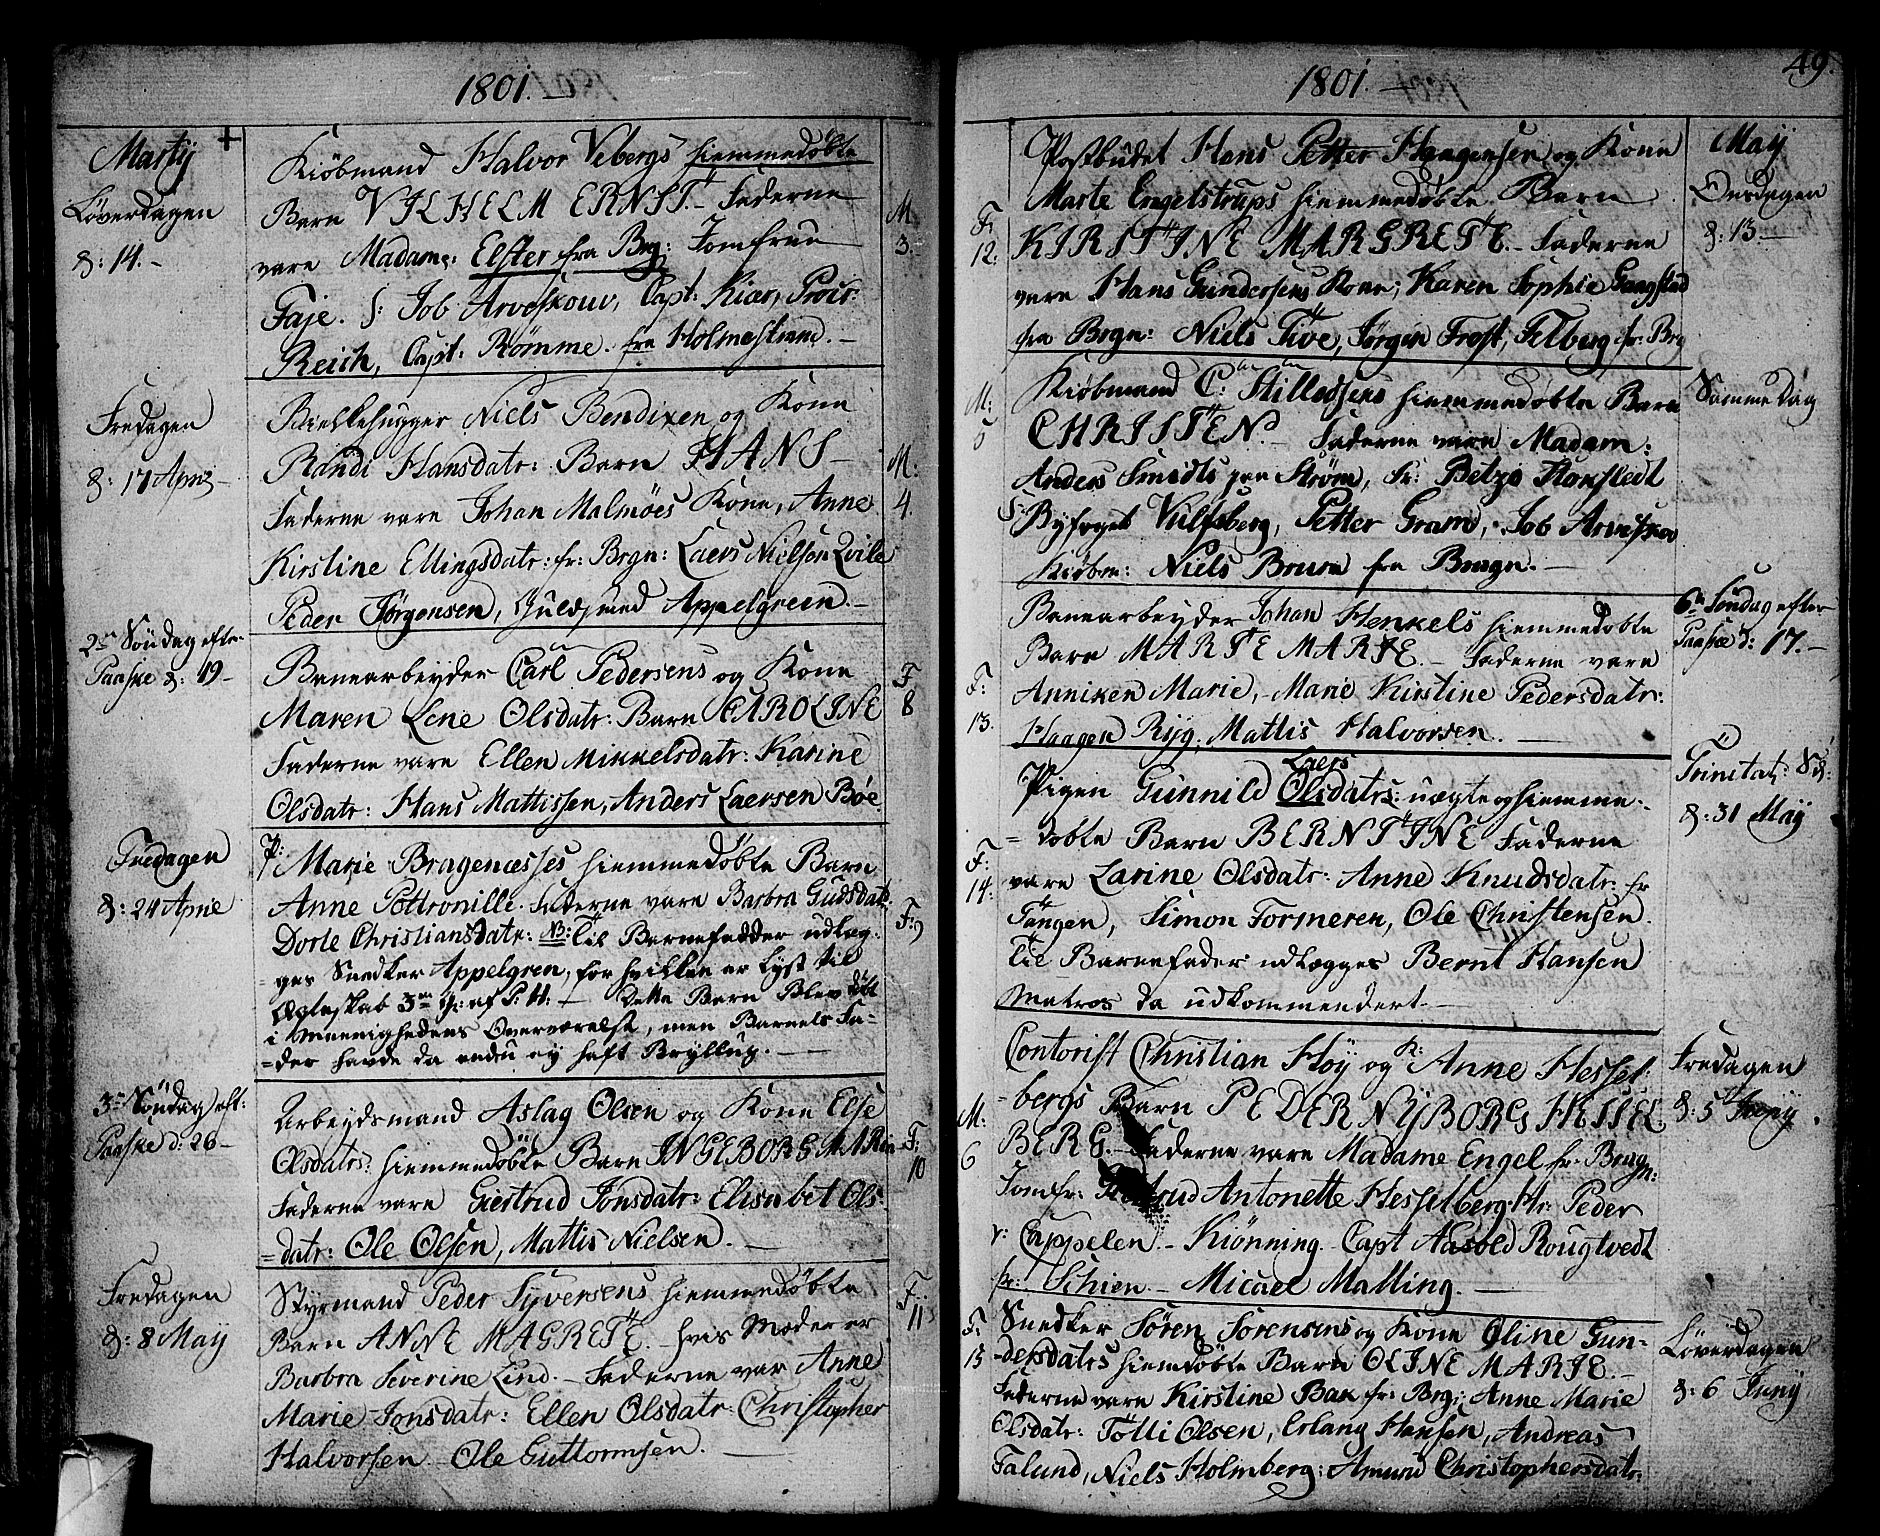 1801.
Martij +
Løverdagen
d: 14.
Kiöbmand Halvor Vebergs hiemmedøbte
Barn VILHELM ERNST. Fadderne
vare Madame: Elster fra Brg: Jomfrue
Faje. S: Job Arveskouv, Capt: Kiær, Procr:
Reich, Capt: Römme. fra Holmestrand.
M.
3.
Fredagen
d: 17 April
Biellehugger Niels Bendixen og Kone
Randi Hansdatr: Barn HANS
Fadderne vare Johan Malmöes Kone, Anne
Kirstine Ellingsdatr: fr: Brgn: Laers Nielson Qvile
Peder Jørgensen, Guldsmed Appelgreen.
M:
4.
2den Söndag eftr.
Paaske d: 19
Banearbeyder Carl Pedersens og Kone
Maren Lene Olsdatr: Barn CAROLINE
Fadderne vare Ellen Mikkelsdatr: Karine
Olsdatr: Hans Mattissen, Anders Laersen Böe.
F
8
Fredagen
d: 24 April
P: Marie Bragenæsses hiemmedøbte Barn
Anne Pettronille. Fadderne vare Barbra Gudsdatr.
Dorte Christiansdatr: NB: Til Barnefadder udlæg-
ges Snedker Appelgren, for hvilken er lyst til
Ægteskab 3die g: af P: H: Dette Barn Blev døbt
i Menighedens Overværelse, men Barnets Fa-
der havde da endnu ey haft Bryllup.
F: 9
3die Söndag eft:
Paaske d: 26
Arbeydsmand Aslag Olsen og Kone Else
Olsdatrs: hiemmedøbte Barn INGEBORG MARia
Fadderne vare Giertrud Jonsdatr: Elisabet Ols
datr: Ole Olsen, Mattis Nielsen.
F:
10
Fredagen
d: 8 May
Styrmand Peder Syversens hiemmedøbte
Barn ANNE MAGRETE. hvis Moder er
Barbra Severine Lind. Fadderne var Anne
Marie Jonsdatr: Ellen Olsdatr: Christopher
Halvorsen Ole Guttormsen.
F:
11
1801.
49.
Postbudet Hans Petter Haagensen og Kone
Marte Engelstrups hiemmedøbte Barn
KIRSTINE MARGRETE. Fadderne
vare Hans Gundersens Kone; Karen Sophie Gaagstad
fra Brgn: Niels Tive, Jørgen Frost, Filberg fr: Brg
F:
12.
May
Onsdagen
d: 13.
Kiöbmand C: Stilledsens hiemmedøbte Barn
CHRISTEN. Fadderne vare Madam:
Anders Smidts paa Strøm, Fr: Betzi Hoxstedt
S: Byfoget Vulfsberg, Petter Gram, Job Arveskov
Kiöbm: Niels Bruun fra Bragn.
M:
5
Samme Dag
Banearbeyder Johan Henkels hiemmedøbte
Barn MARTE MARIE. Fadderne vare
Anniken Marie, Marie Kirstine Pedersdatr:
Haagen Ryg, Mattis Halvorsen.
F:
13.
6te Søndag efter
Paaske d: 17.
Laers
Pigen Gunnild Olsdatrs: uægte og hiemme-
døbte Barn BERNTINE Fadderne
vare Larine Olsdatr: Anne Knudsdatr: fr
Tangen, Simon Formeren, Ole Christensen.
Til Barnefader udlægges Bernt Hansen
Matros da udkommendert.
F:
14.
Trinitat: Sd:
d: 31 May
Contorist Christian Höy og K: Anne Hessel-
bergs Barn PEDER NYBORG HESSEL
BERG. Fadderne vare Madame Engel fr. Bragn:
Jomfr: Giertrud Antonette Hesselberg. Hr: Peder
v: Cappelen. Kiönning. Capt Aasold Rougtvedt
fr: Schien. Micael Malling.
M:
6
Fredagen
d: 5 Juny
Snedker Søren Sørensens og Kone Oline Gun-
dersdatrs hiemdøbte Barn OLINE MARIE.
Fadderne vare Kirstine Bak fr: Brg; Anne Marie
Olsdatr: Tolli Olsen, Erland Hansen, Andreas
Falund, Niels Holmberg: Amund Christophersdatr.
F:
15
Løverdagen
d: 6 Juny